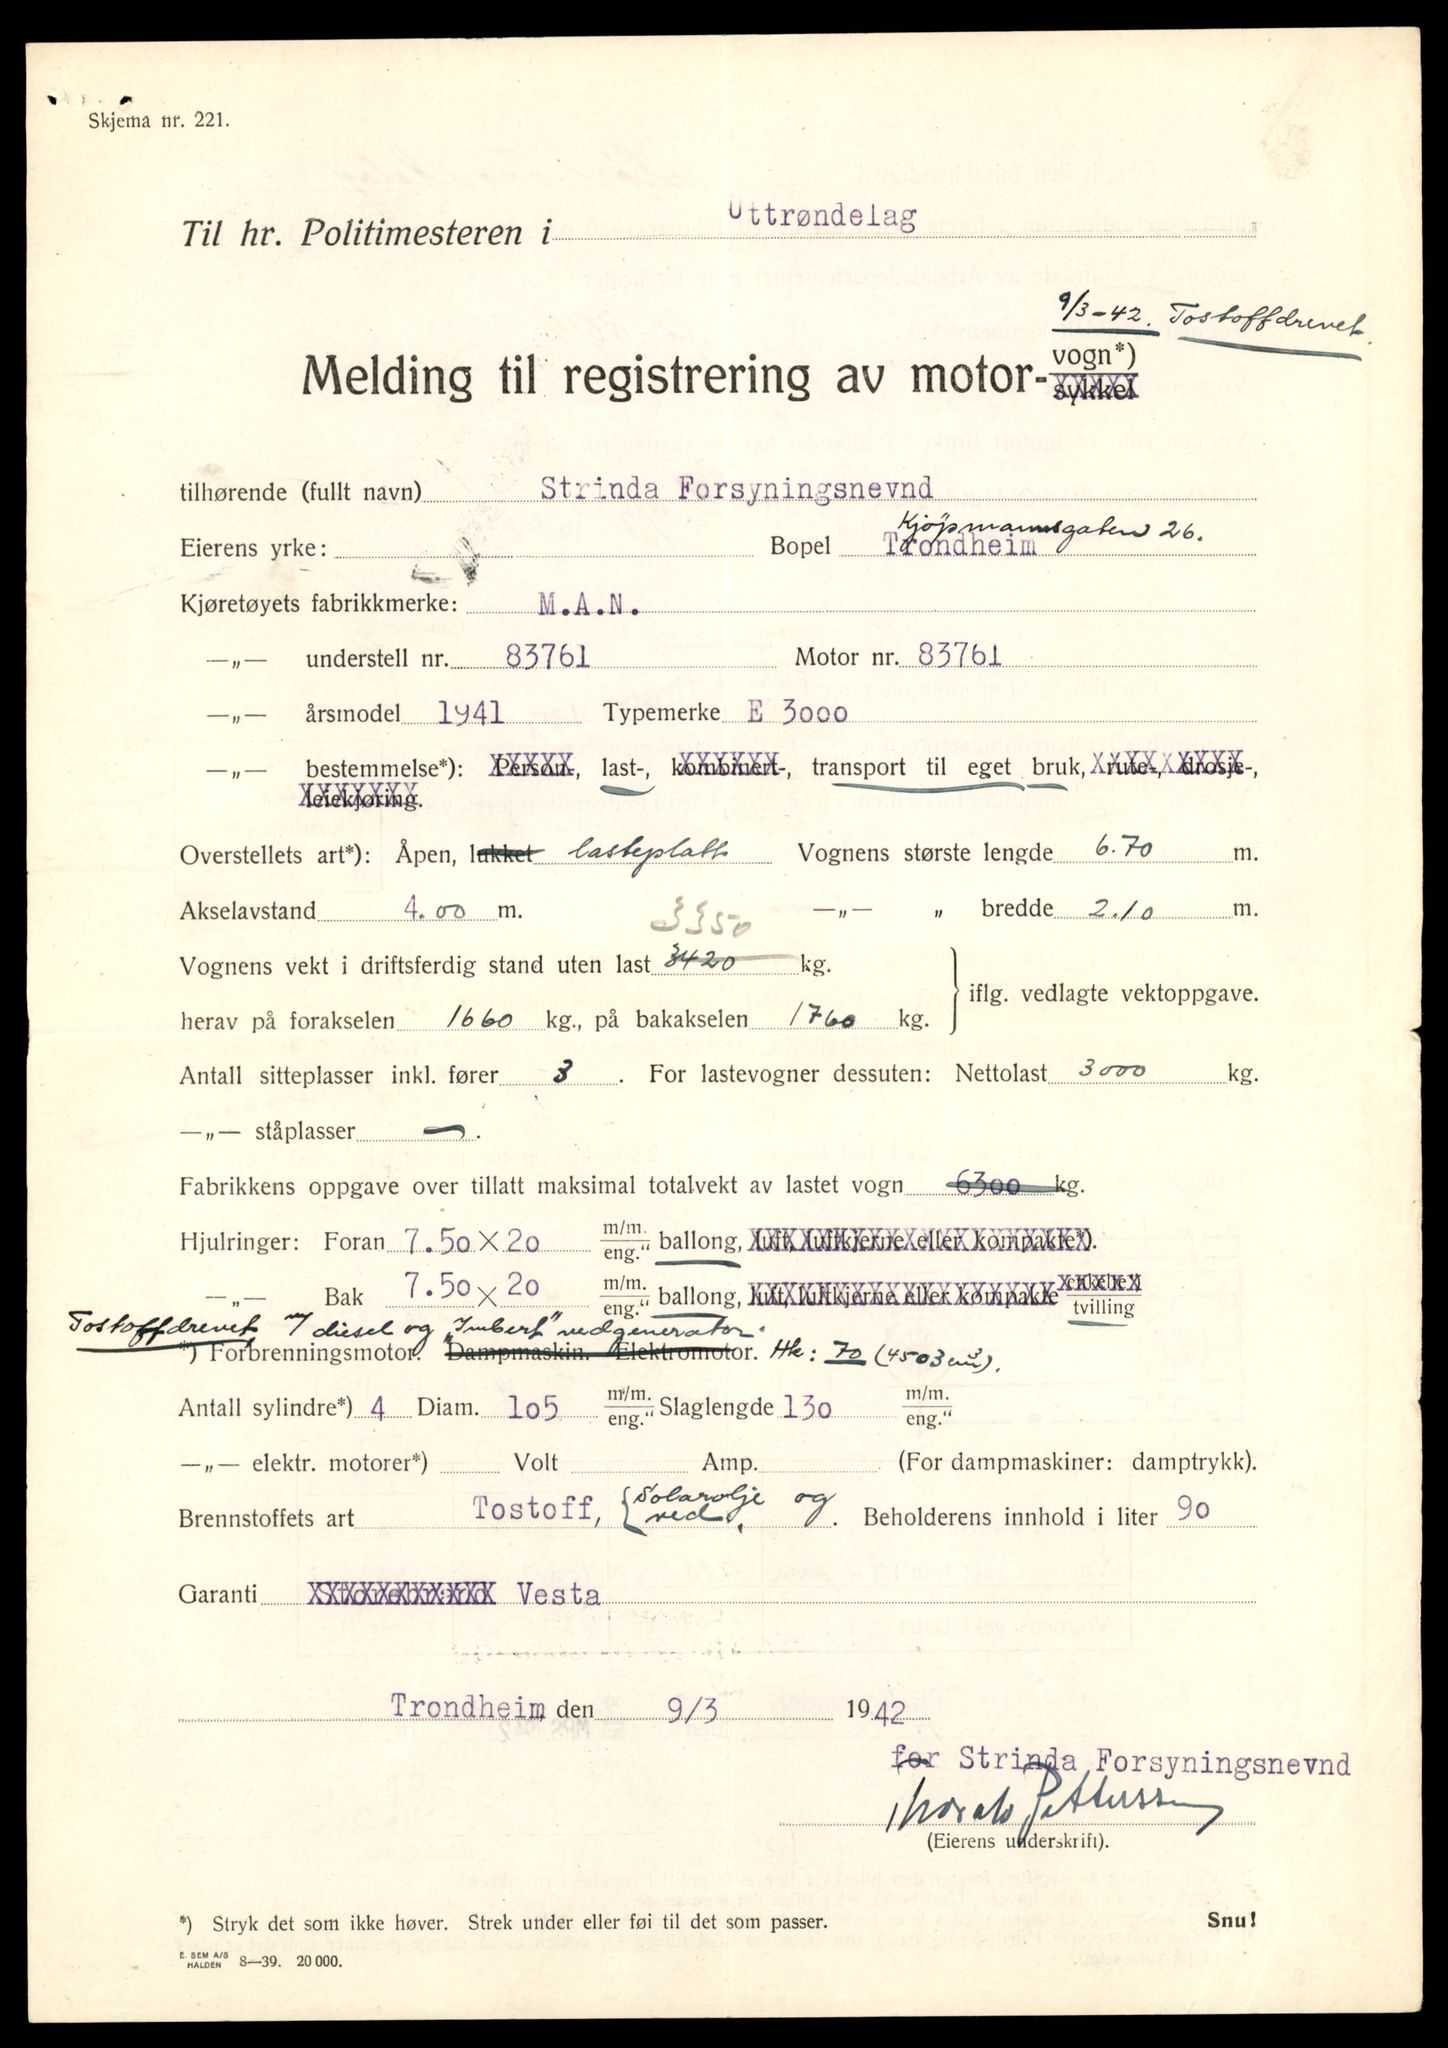 Skjema nr. 221.
Til hr. Politimesteren i Uttrøndelag
9/3-42. Tostoffdrevet.
Melding til registrering av motor- vogn*)
sykkel
tilhørende (fullt navn) Strinda Forsyningsnevnd
Kjøpmannsgaten 26.
Eierens yrke: Bopel Trondheim
Kjøretøyets fabrikkmerke: M.A.N.
—„— understell nr. 83761 Motor nr. 83761
—„— årsmodel 1941 Typemerke E 3000
—„— bestemmelse*): Person-, last-, kombinert-, transport til eget bruk, rute-, drosje-,
leiekjøring.
Overstellets art*): Åpen, lukket lasteplatt Vognens største lengde 6.70 m.
Akselavstand 4.00 m. —„— „ bredde 2.10 m.
3350
Vognens vekt i driftsferdig stand uten last 3420 kg.
iflg. vedlagte vektoppgave.
herav på forakselen 1660 kg., på bakakselen 1760 kg.
Antall sitteplasser inkl. fører 3. For lastevogner dessuten: Nettolast 3000 kg.
—„— ståplasser — .
Fabrikkens oppgave over tillatt maksimal totalvekt av lastet vogn 6300 kg.
Hjulringer: Foran 7.50 X 20 m/m. eng.“ ballong, luft, luftkjerne eller kompakte*).
—„— Bak 7.50 X 20 m/m. eng.“ ballong, luft, luftkjerne eller kompakte enkelt tvilling
Tostoffdrevet m/ diesel og „Imbert“ vedgenerator.
*) Forbrenningsmotor. Dampmaskin. Elektromotor. Hk: 70 (4503 cm³).
Antall sylindre*) 4 Diam. 105 m/m. eng.“ Slaglengde 130 m/m. eng.“
—„— elektr. motorer*) Volt Amp. (For dampmaskiner: damptrykk).
Brennstoffets art Tostoff, {Solarolje og ved. Beholderens innhold i liter 90
Garanti Storebrand Vesta
Trondheim den 9/3 1942
for Strinda Forsyningsnevnd
Pettersen
(Eierens underskrift).
*) Stryk det som ikke høver. Strek under eller føi til det som passer. Snu!
E. SEM A/S HALDEN 8—39. 20 000.